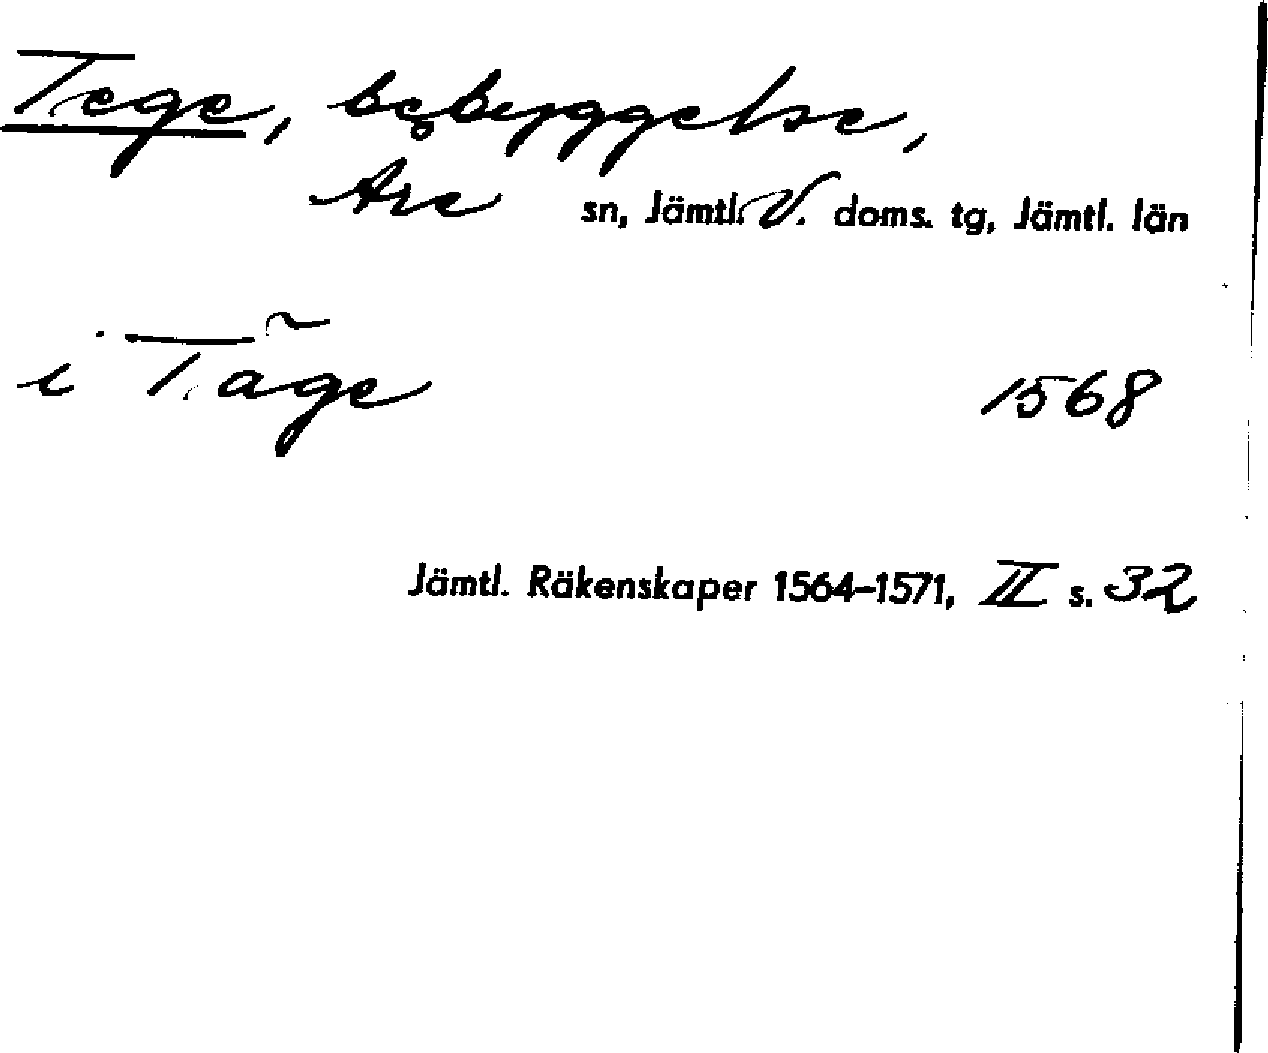 Tege, bebyggelse,
Åre sn, Jämtl. V. doms. tg, Jämtl. län
i Täge 1568
Jämtl. Räkenskaper 1564–1571, II s. 32